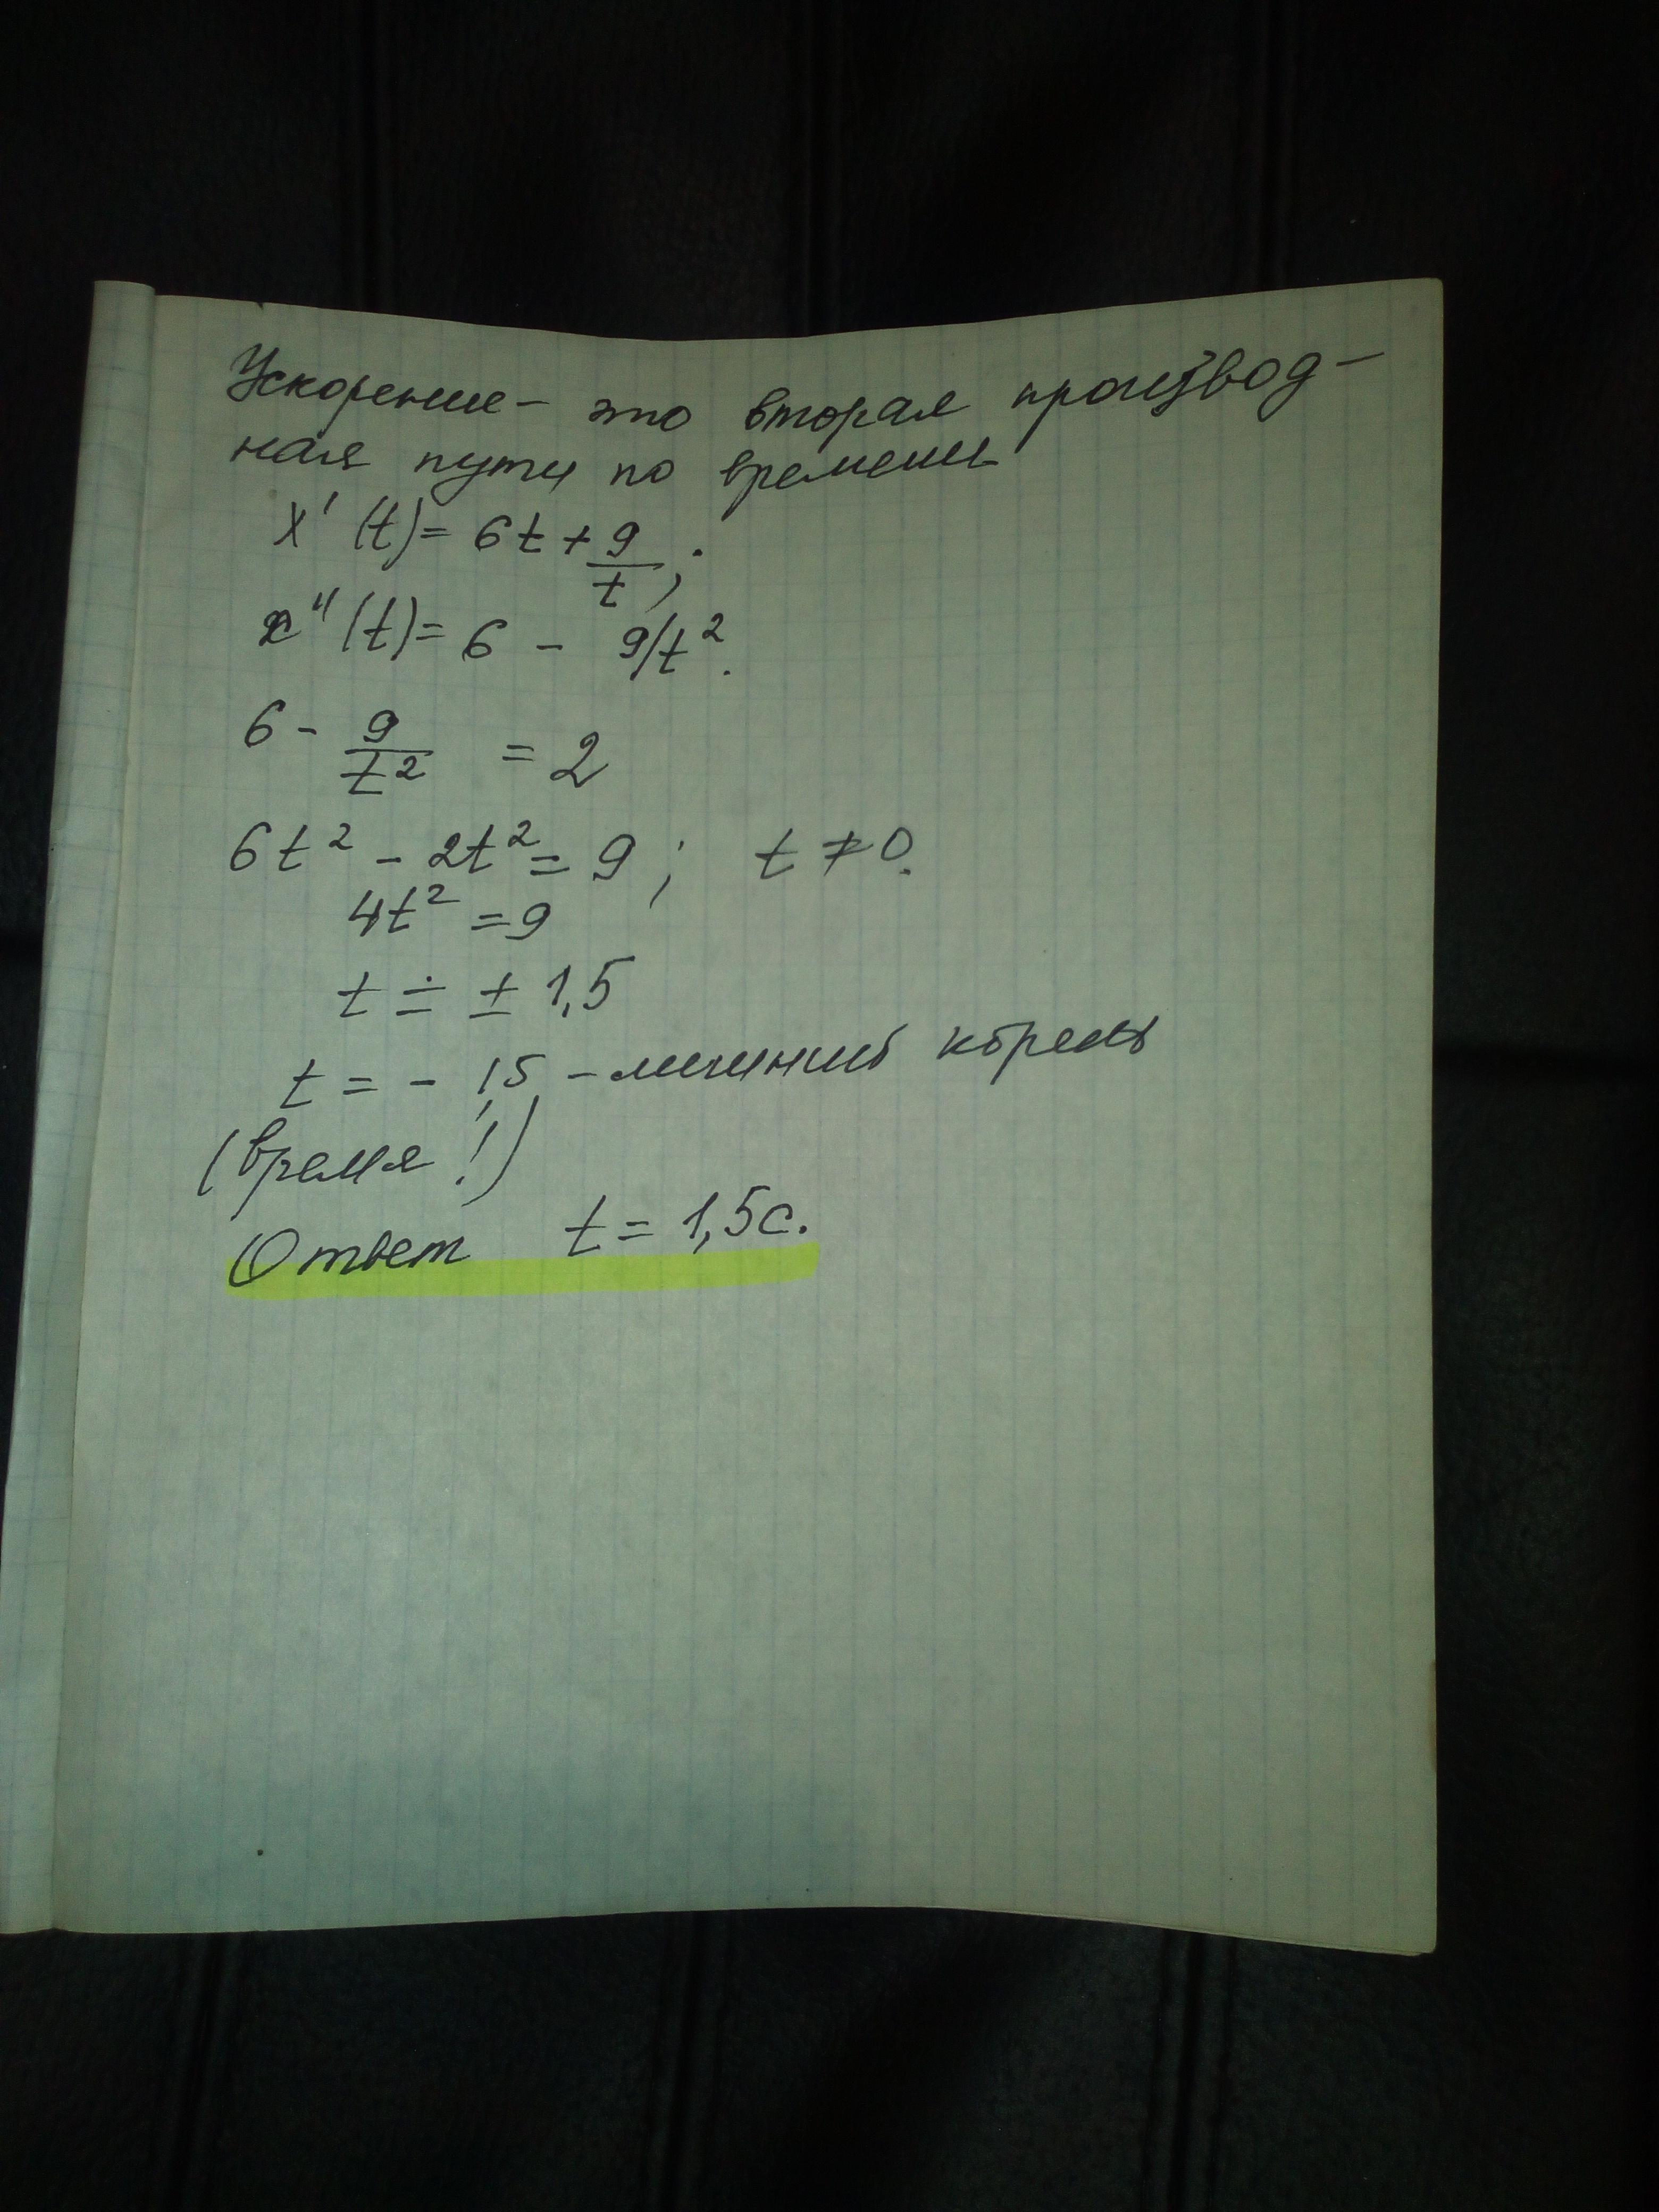 Ускорение - это вторая производ-
ная пути по времени
x'(t) = 6t + 9/t;
x''(t) = 6 - 9/t².
6 - 9/t² = 2
6t² - 2t² = 9; t ≠ 0.
4t² = 9
t = ± 1,5
t = - 1,5 - лишний корень
(время!)
Ответ t = 1,5с.